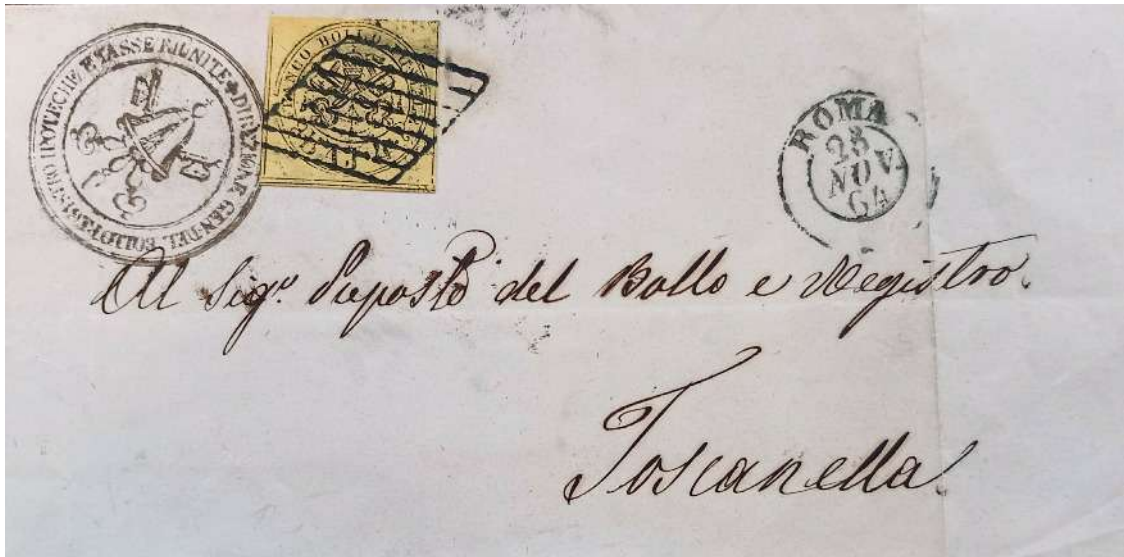 DIREZIONE GEN. DEL BOLLO REGISTRO IPOTECHE E TASSE RIUNITE
FRANCO BOLLO
BAJ
ROMA
23
NOV.
64
Al Sigr. Preposto del Bollo e Registro.
Toscanella.